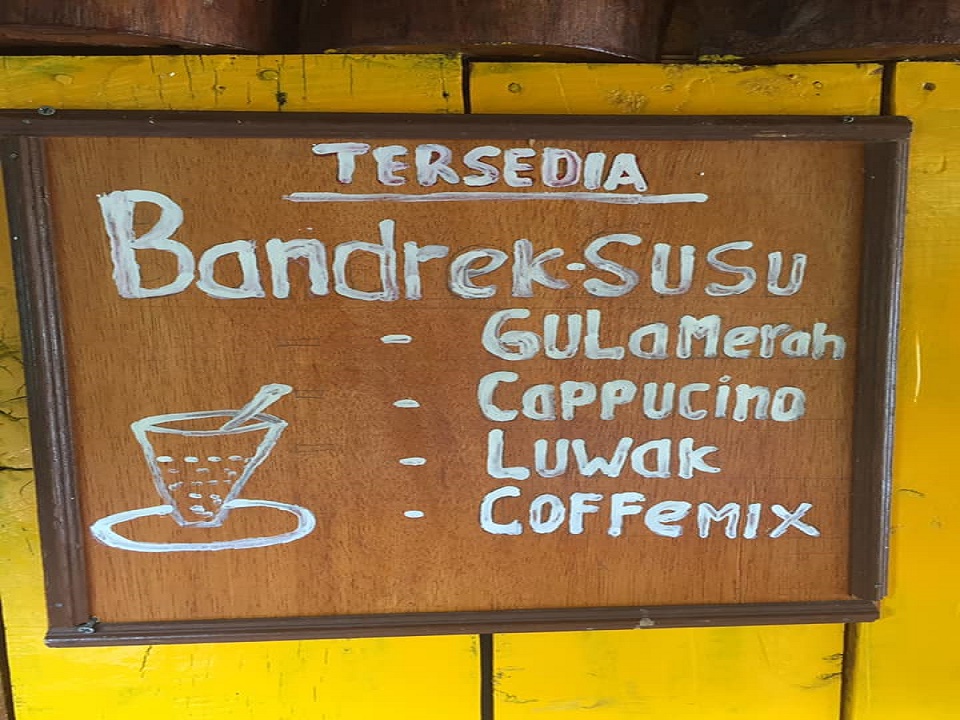 TERSEDIA
Bandrek-SUSU
- GULaMerah
- Cappucino
- Luwak
- COFFeMIX